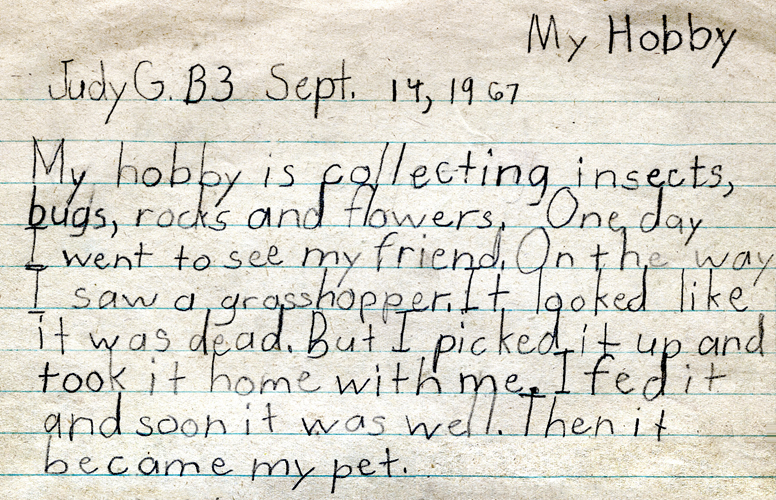 My Hobby
Judy G. B3 Sept. 14, 1967
My hobby is collecting insects,
bugs, rocks and flowers. One day
I went to see my friend. On the way
I saw a grasshopper. It looked like
it was dead. But I picked it up and
took it home with me. I fed it
and soon it was well. Then it
became my pet.